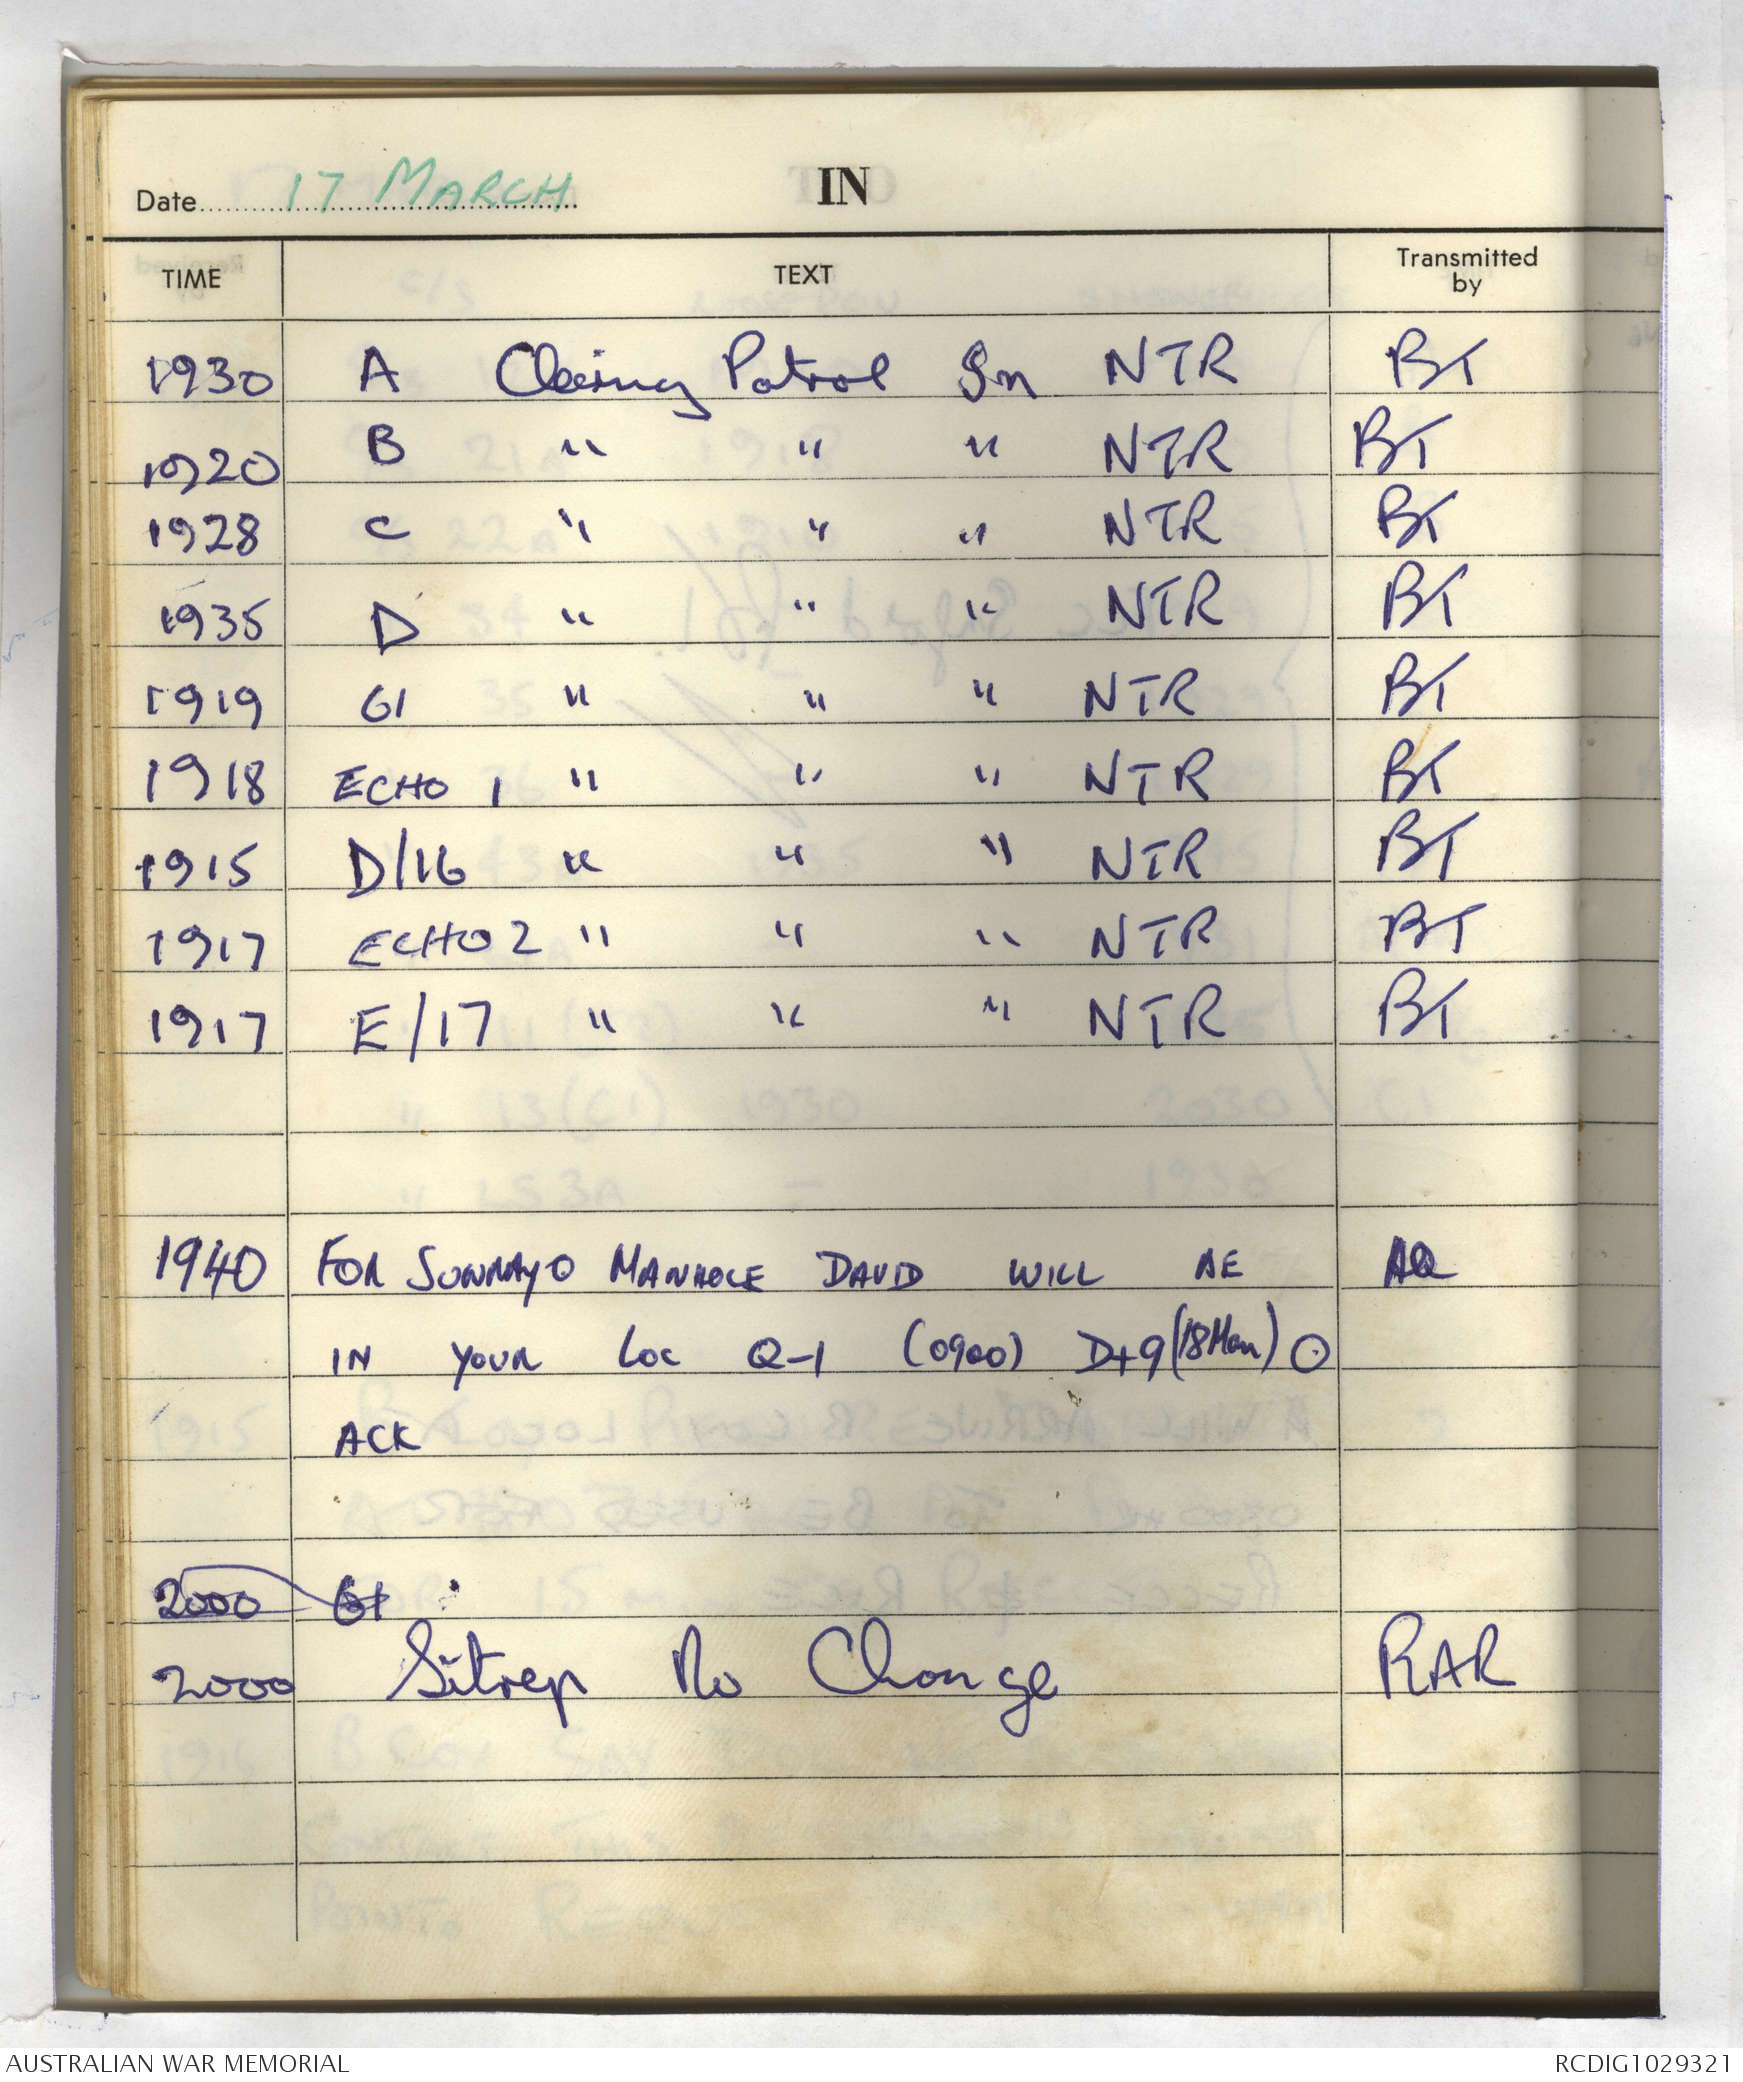 Date 17 MARCH IN
TIME TEXT Transmitted by
1930 A Clearing Patrol In NTR BT
1920 B " " " NTR BT
1928 C " " " NTR BT
1935 D " " " NTR BT
1919 61 " " " NTR BT
1918 ECHO 1 " " " NTR BT
1915 D/16 " " " NTR BT
1917 ECHO 2 " " " NTR BT
1917 E/17 " " " NTR BT
1940 FOR SUNRAY O MANHOLE DAVID WILL BE
IN YOUR LOC Q-1 (0900) D+9 (18 Mar) O
ACK
2000 61
2000 Sitrep No Change RAR
AUSTRALIAN WAR MEMORIAL RCDIG1029321